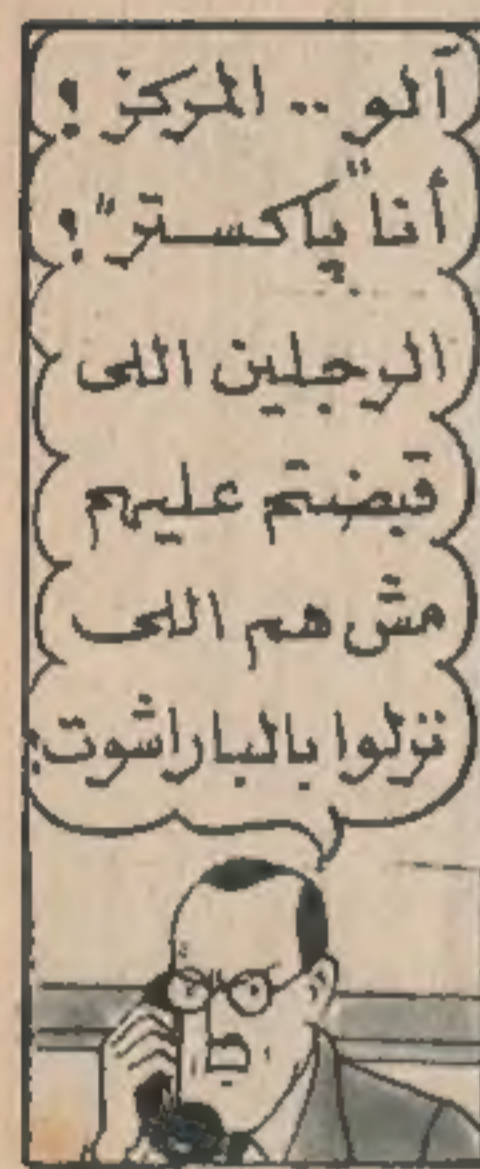 آلو .. المركز !
أنا "باكستر" !
الرجلين اللى
قبضتم عليهم
مش هم اللى
نزلوا بالباراشوت !